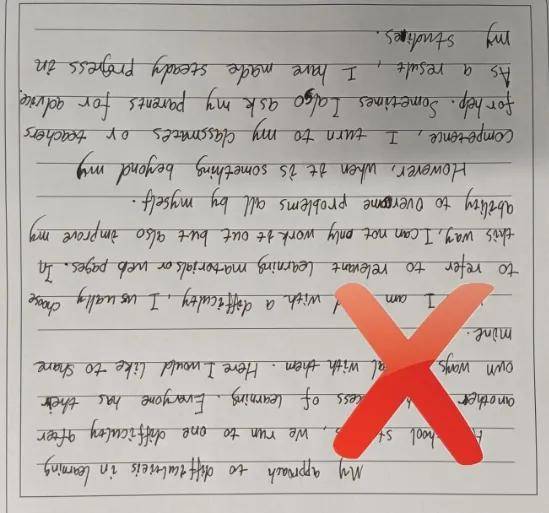 My approach to difficulties in learning
school, we run to one difficulty after
another of learning. Everyone has their
own ways them. Here I would like to share
mine.
I am with a difficulty, I usually choose
to refer to relevant learning materials or web pages. In
this way, I can not only work it out but also improve my
ability to overcome problems all by myself.
However, when it is something beyond my
competence, I turn to my classmates or teachers
for help. Sometimes I also ask my parents for advice.
As a result, I have made steady progress in
my studies.